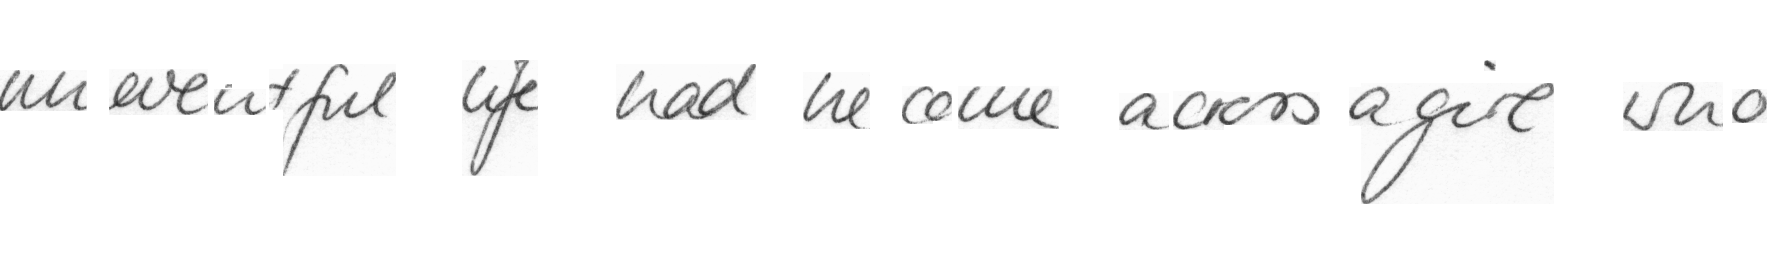 uneventful life had he come across a girl who